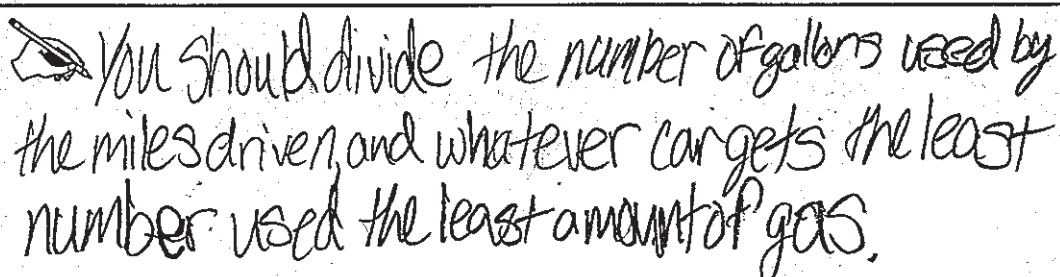 You should divide the number of gallons used by
the miles driven, and whatever car gets the least
number used the least amount of gas.